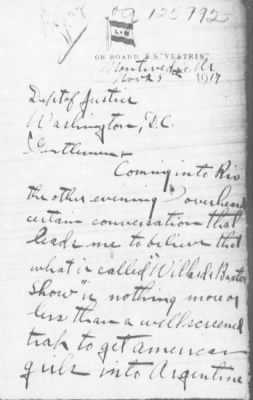 OG 125992
L & H
ON BOARD S.S. "VESTRIS"
Montivedeo, Ur
Nov 3 1917
Dept of Justice
Washington, D.C.
Gentlemen
Coming into Rio
the other evening I overheard
certain conversation that
leads me to believe that
what is called "Willard's
Show" is nothing more or
less than a well screened
trap to get american
girls into Argentine